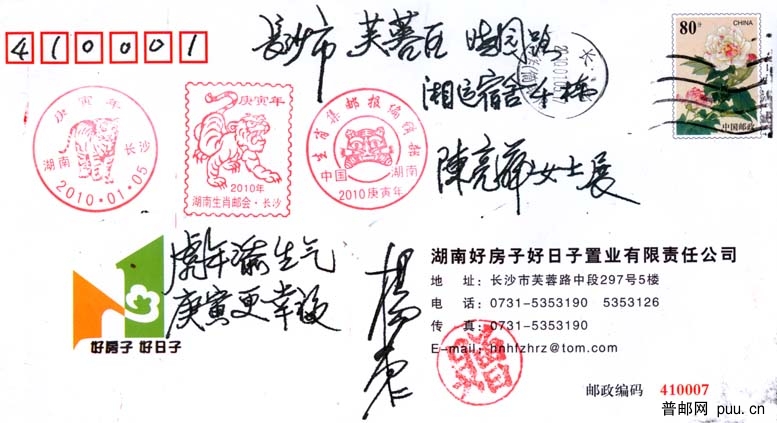 410001
长沙市 芙蓉区 曉园路
湘运宿舍
陳亮 女士 展
80分 CHINA
中国邮政
庚寅年
湖南 长沙
2010·01·05
庚寅年
2010年
湖南生肖邮会·长沙
生肖集邮报编辑部
中国 湖南
2010庚寅年
虎年添生气
庚寅更幸福
楊
好房子 好日子
湖南好房子好日子置业有限责任公司
地 址：长沙市芙蓉路中段297号5楼
电 话：0731-5353190 5353126
传 真：0731-5353190
E-mail：hnhfzhrz@tom.com
邮政编码 410007
普邮网 puu.cn